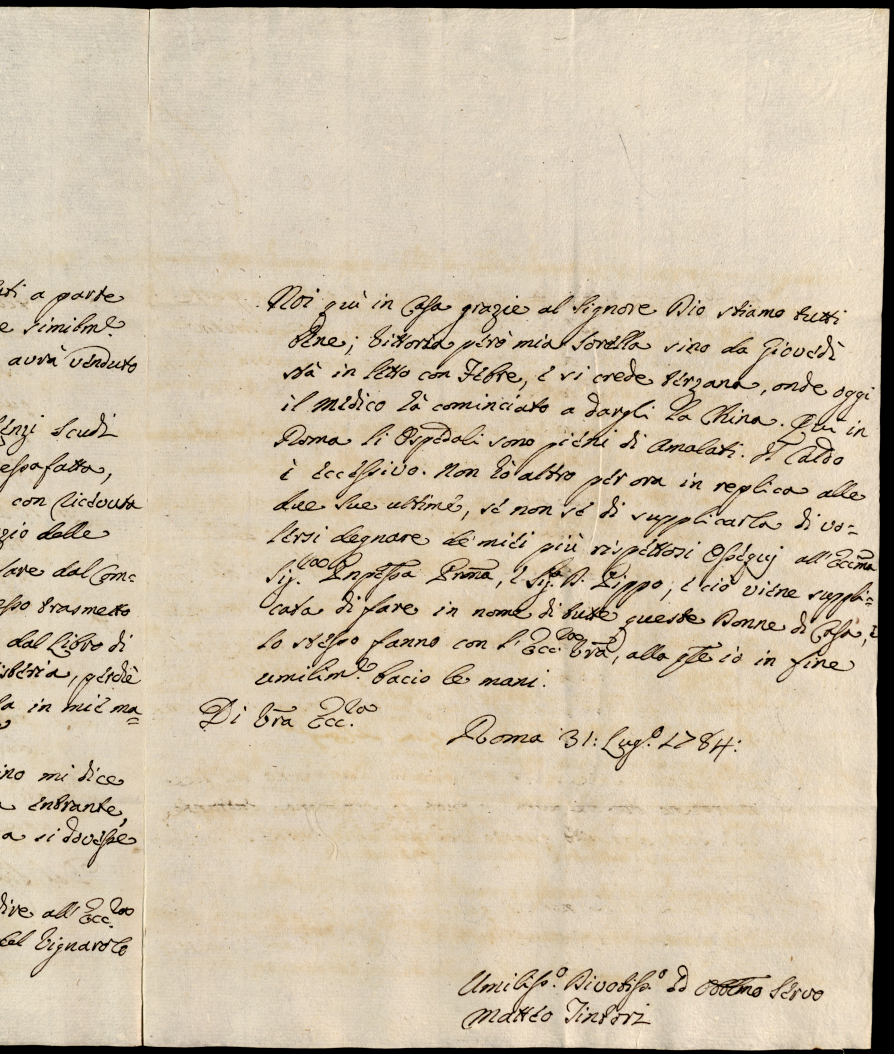 uti a parte
e similm.e
avrà venduto
scudi
essafatta,
con ricevuta
zio delle
dal Com=
esso trasmetto
dal Libro di
perchè
in mie ma=
ino mi dice
entrante,
a si dovesse
dire all'Ecc.za
del Vignarolo
Noi quì in Casa grazie al Signore Dio stiamo tutti
bene; Vittoria però mia sorella sino da Giovedì
stà in letto con Febre, e si crede terzana, onde oggi
il medico hà cominciato a dargli la China. Quì in
Roma li Ospedali sono pieni di Amalati. Il Caldo
è eccessivo. Non hò altro per ora in replica alle
due sue ultime, se non se di supplicarla di vo=
lersi degnare de miei più rispettosi Ossequj all'Eccma
Sig.ra Pnpessa Prma, e Sig.r D. Pippo, e ciò viene suppli=
cata di fare in nome di tutte queste Donne di Casa, e
lo stesso fanno con l'Ecc.za Vra, alla qle io in fine
umilim.e bacio le mani.
Di Vra Ecc.za
Roma 31: Lug.o 1784:
Umiliss.o Divotiss.o ed Obblmo Servo
Matteo Tintori